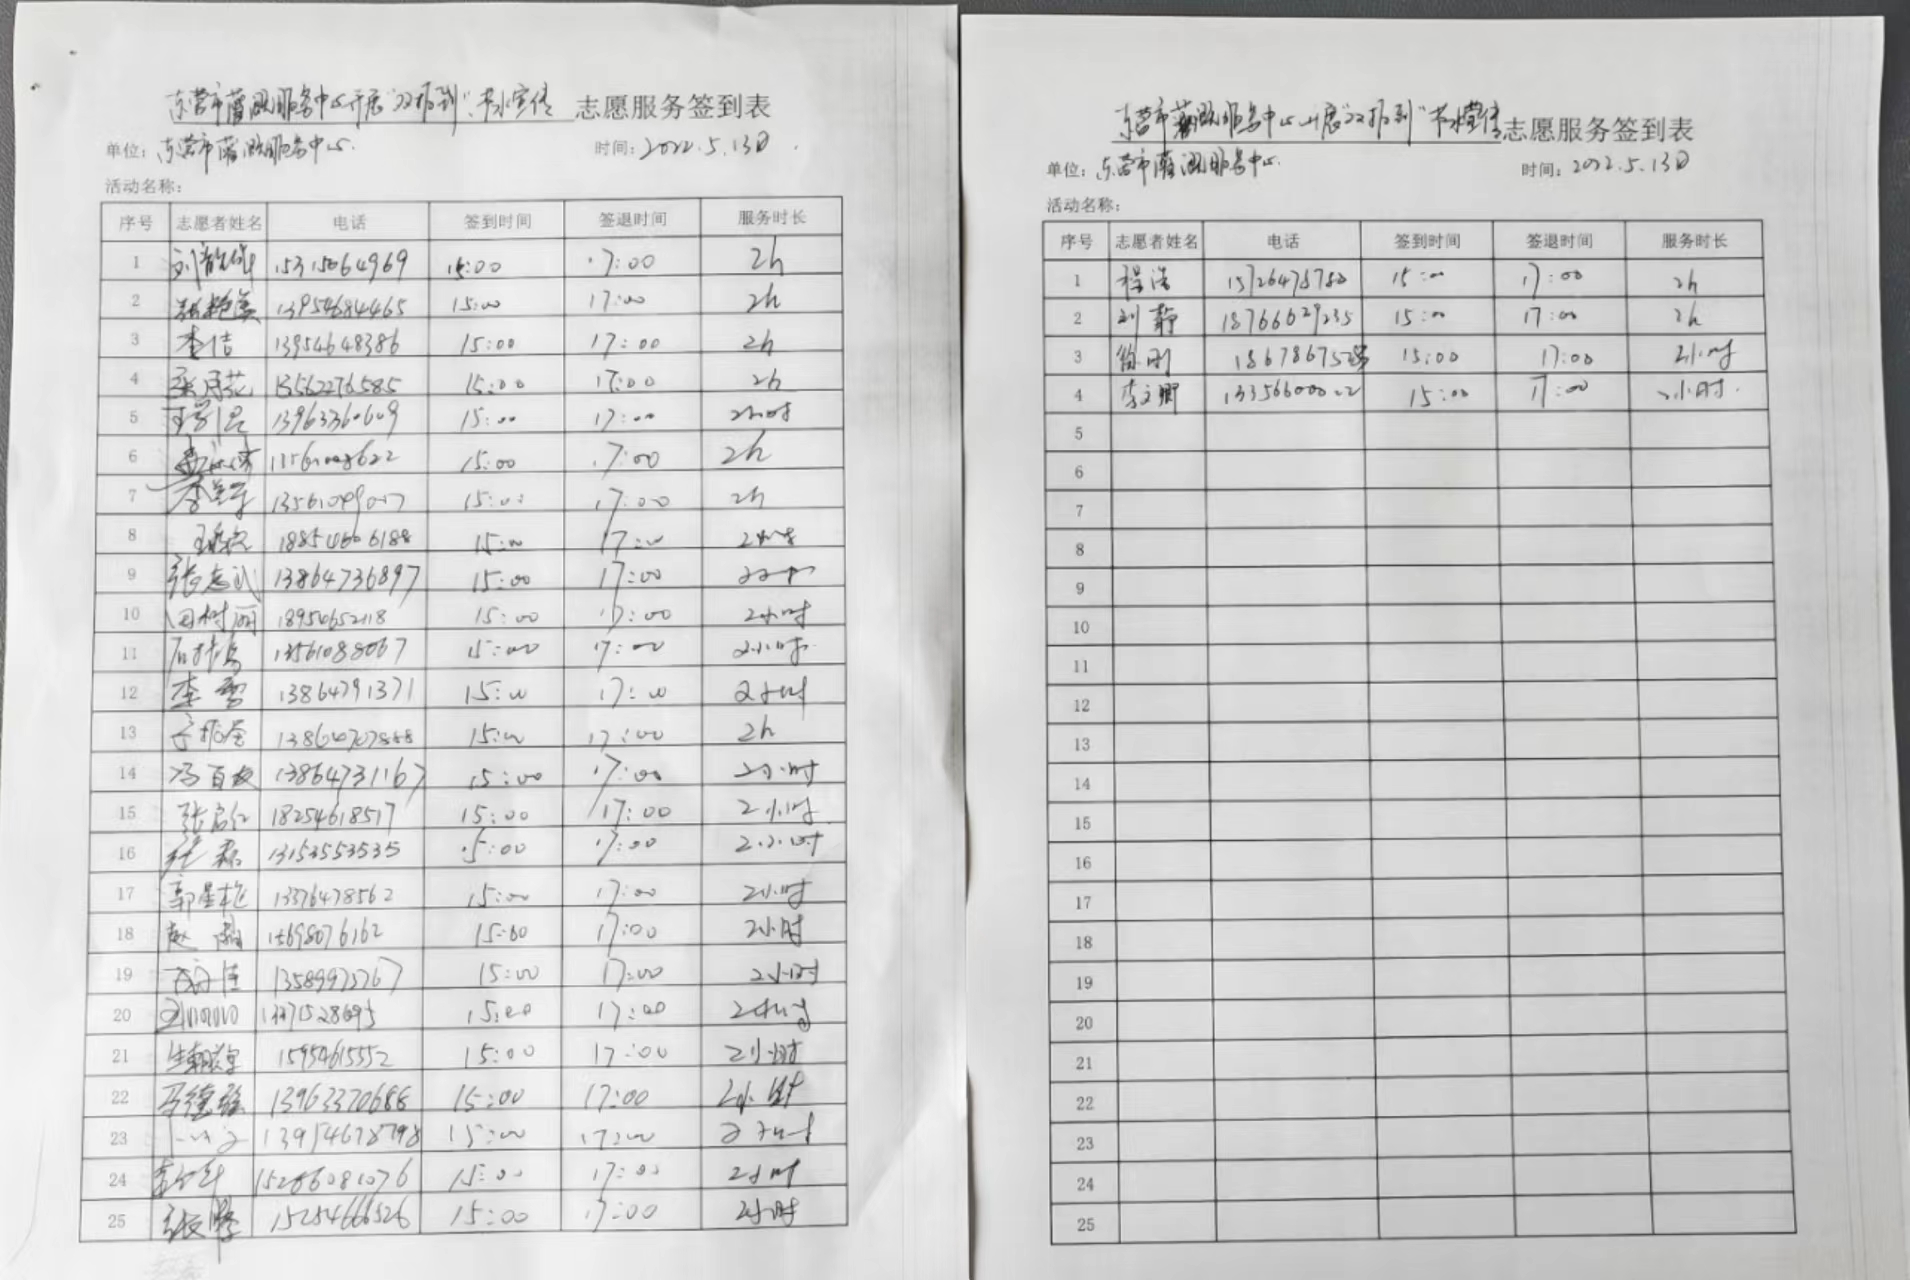 东营市灌溉服务中心开展"双报到"节水宣传 志愿服务签到表
单位：东营市灌溉服务中心 时间：2022.5.13日
活动名称：
序号 志愿者姓名 电话 签到时间 签退时间 服务时长
1 15315064969 15:00 17:00 2h
2 13954684465 15:00 17:00 2h
3 李洁 13954648386 15:00 17:00 2h
4 13562276585 15:00 17:00 2h
5 13963360609 15:00 17:00 2小时
6 15:00 17:00 2h
7 15:00 17:00 2h
8 18854606188 15:00 17:00 2小时
9 张志武 13864736897 15:00 17:00
10 田树丽 15:00 17:00 2小时
11 13561088067 15:00 17:00 2小时
12 李雪 13864791371 15:00 17:00 2小时
13 15:00 17:00 2h
14 冯百友 13864731167 15:00 17:00 2小时
15 张启仁 18254618517 15:00 17:00 2小时
16 13153553535 15:00 17:00 2小时
17 郭星 13376478562 15:00 17:00 2小时
18 赵 15698076162 15:00 17:00 2小时
19 13589973767 15:00 17:00 2小时
20 15:00 17:00 2小时
21 15954615552 15:00 17:00 2小时
22 马德 13963370688 15:00 17:00 2小时
23 13954678798 15:00 17:00 2小时
24 15266081076 15:00 17:00 2小时
25 15254666526 15:00 17:00 2小时
东营市灌溉服务中心开展"双报到"节水宣传志愿服务签到表
单位：东营市灌溉服务中心 时间：2022.5.13日
活动名称：
序号 志愿者姓名 电话 签到时间 签退时间 服务时长
1 程浩 15:00 17:00 2h
2 刘静 18766629235 15:00 17:00 2h
3 徐刚 15:00 17:00 2小时
4 李文卿 13356600022 15:00 17:00 2小时
5
6
7
8
9
10
11
12
13
14
15
16
17
18
19
20
21
22
23
24
25